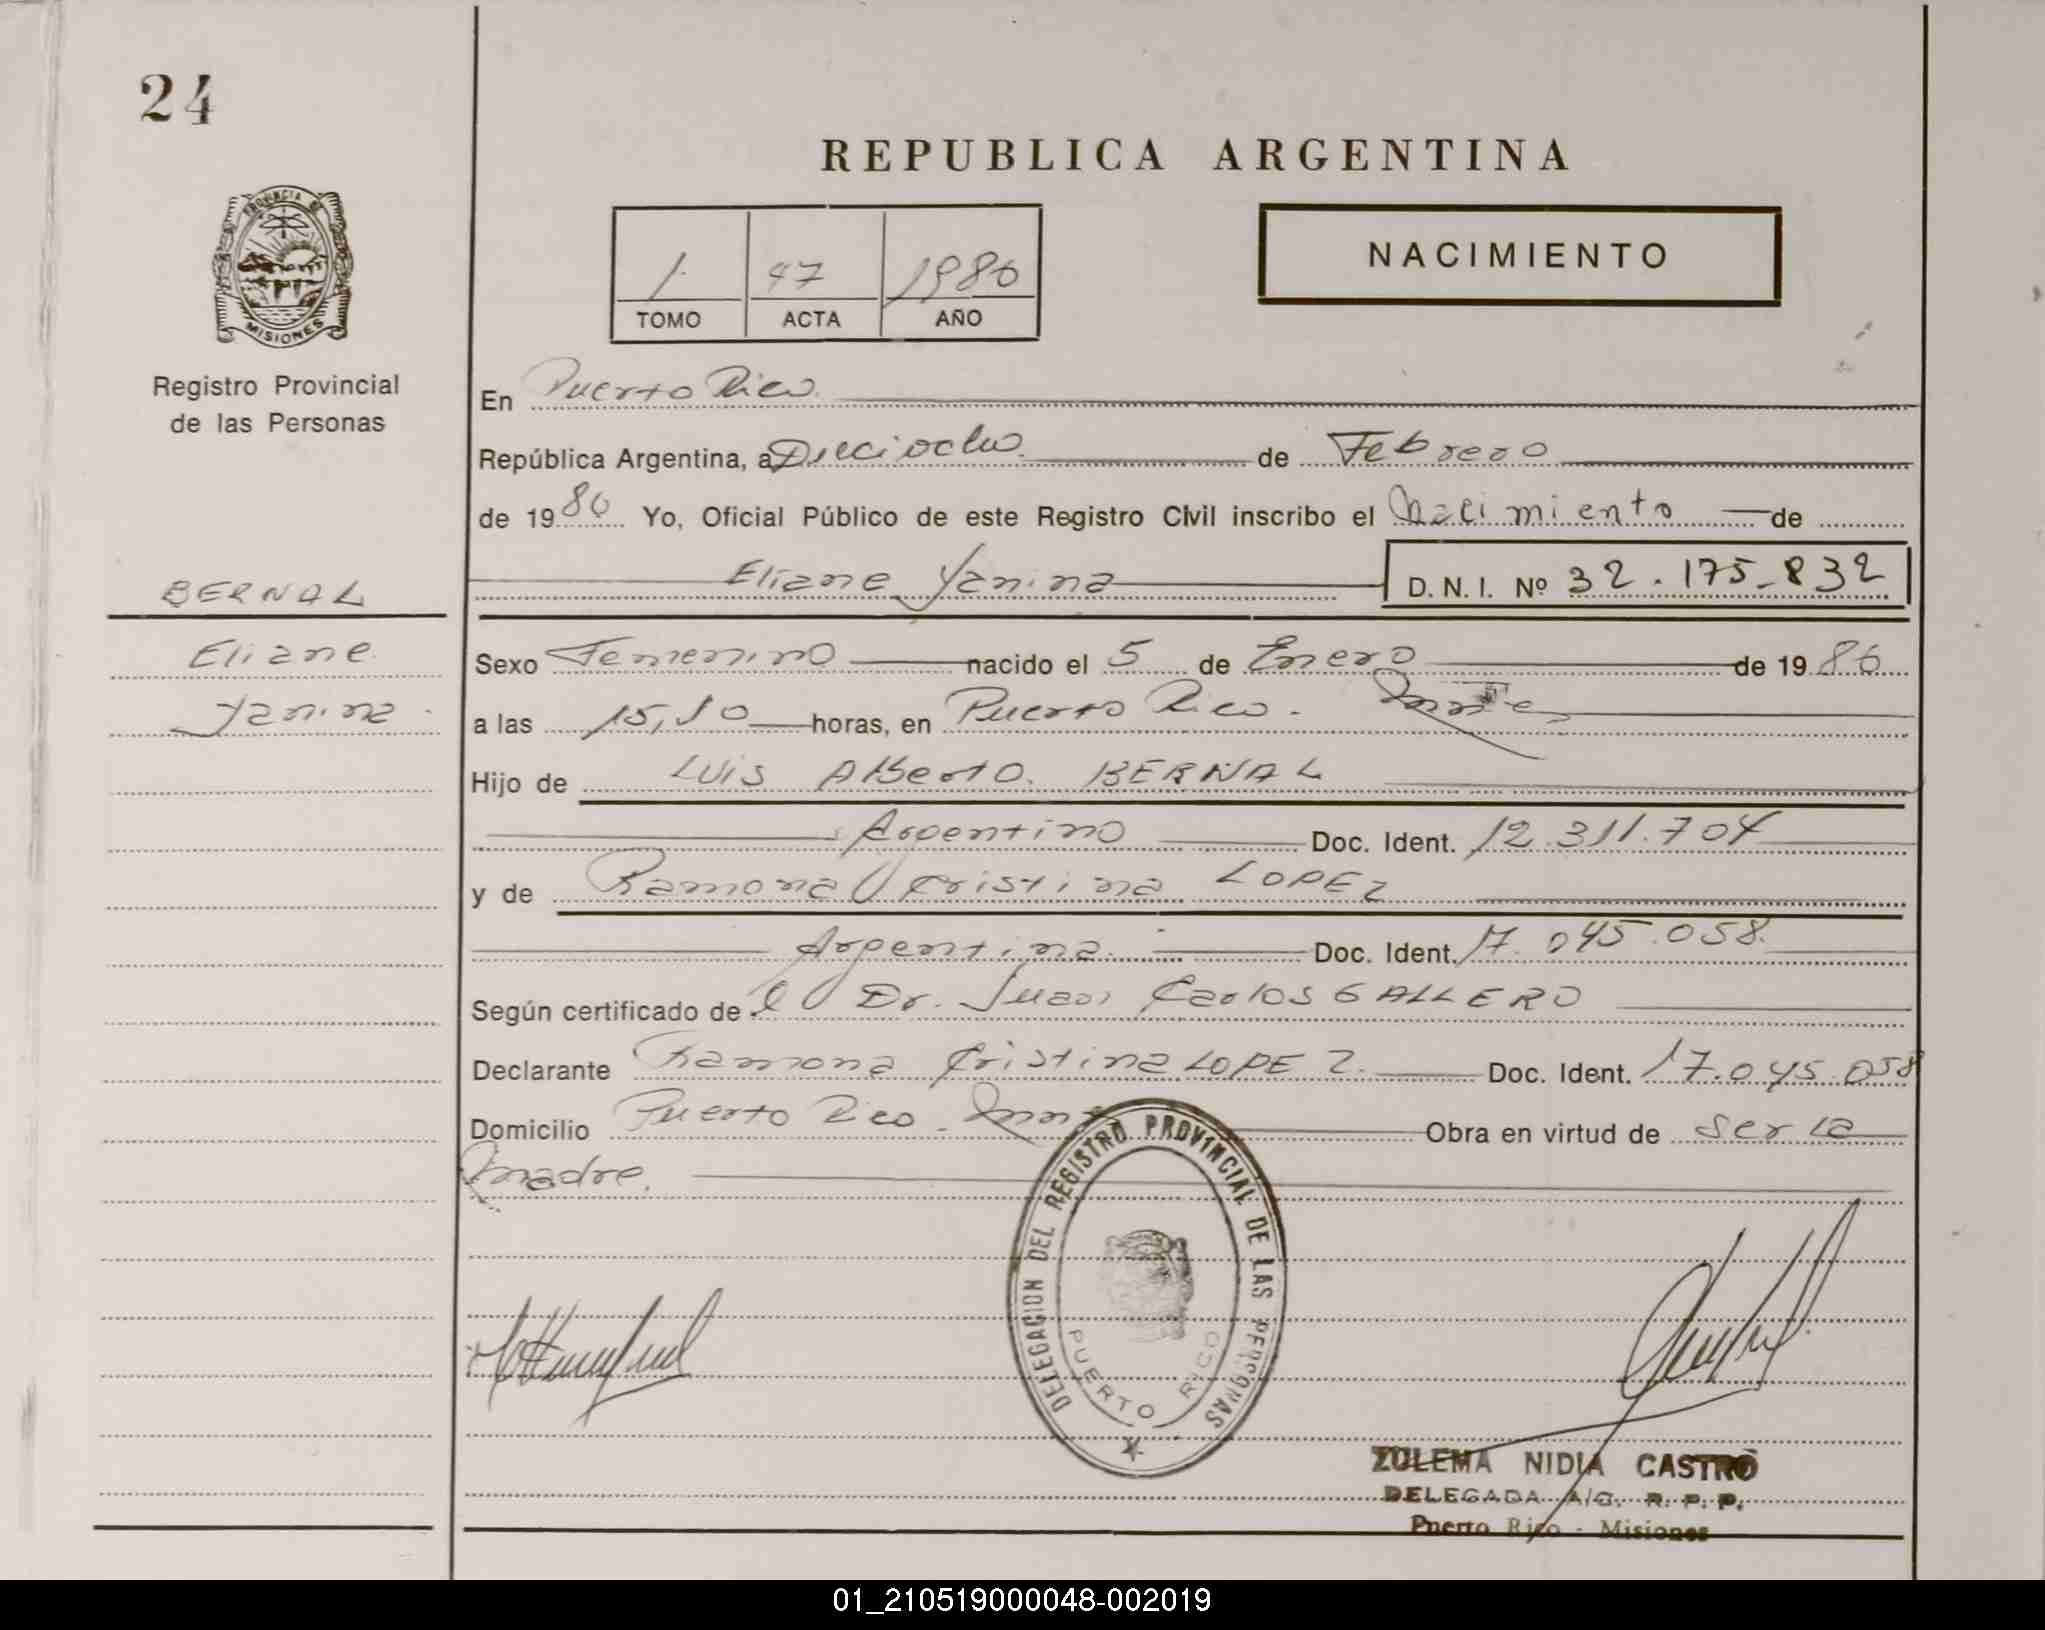 24
REPUBLICA ARGENTINA
PROVINCIA DE
MISIONES
Registro Provincial
de las Personas
1 47 1986
TOMO ACTA AÑO
NACIMIENTO
En Puerto Rico
República Argentina, a Dieciocho de Febrero
de 1986 Yo, Oficial Público de este Registro Civil inscribo el Nacimiento de
Eliane Yanina D. N. I. Nº 32.175-832
BERNAL
Eliane
Yanina
Sexo Femenino nacido el 5 de Enero de 1986
a las 15,10 horas, en Puerto Rico. Mnes
Hijo de LUIS Alberto BERNAL
Argentino Doc. Ident. 12.311.704
y de Ramona Cristina LOPEZ
Argentina Doc. Ident. 17.045.058
Según certificado de l Dr. Juan Carlos GALLERO
Declarante Ramona Cristina LOPEZ. Doc. Ident. 17.045.058
Domicilio Puerto Rico - Obra en virtud de ser la
Madre.
DELEGACION DEL REGISTRO PROVINCIAL DE LAS PERSONAS
PUERTO RICO
ZULEMA NIDIA CASTRO
DELEGADA A/C. R. P. P.
Puerto Rico - Misiones
01_210519000048-002019